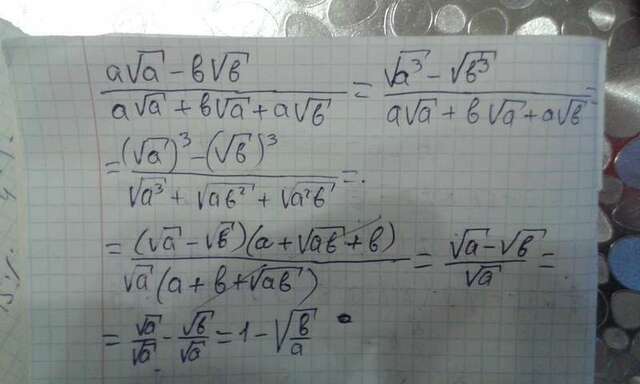 (a√a − b√b)/(a√a + b√a + a√b) = (√a³ − √b³)/(a√a + b√a + a√b) =
= ((√a)³ − (√b)³)/(√a³ + √ab² + √a²b) =
= (√a − √b)(a + √ab + b)/(√a(a + b + √ab)) = (√a − √b)/√a =
= √a/√a − √b/√a = 1 − √(b/a)